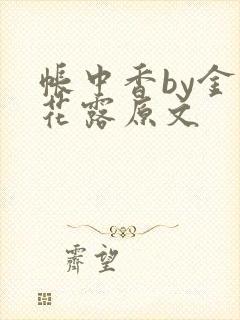 帐中香by金
花露原文
霁望